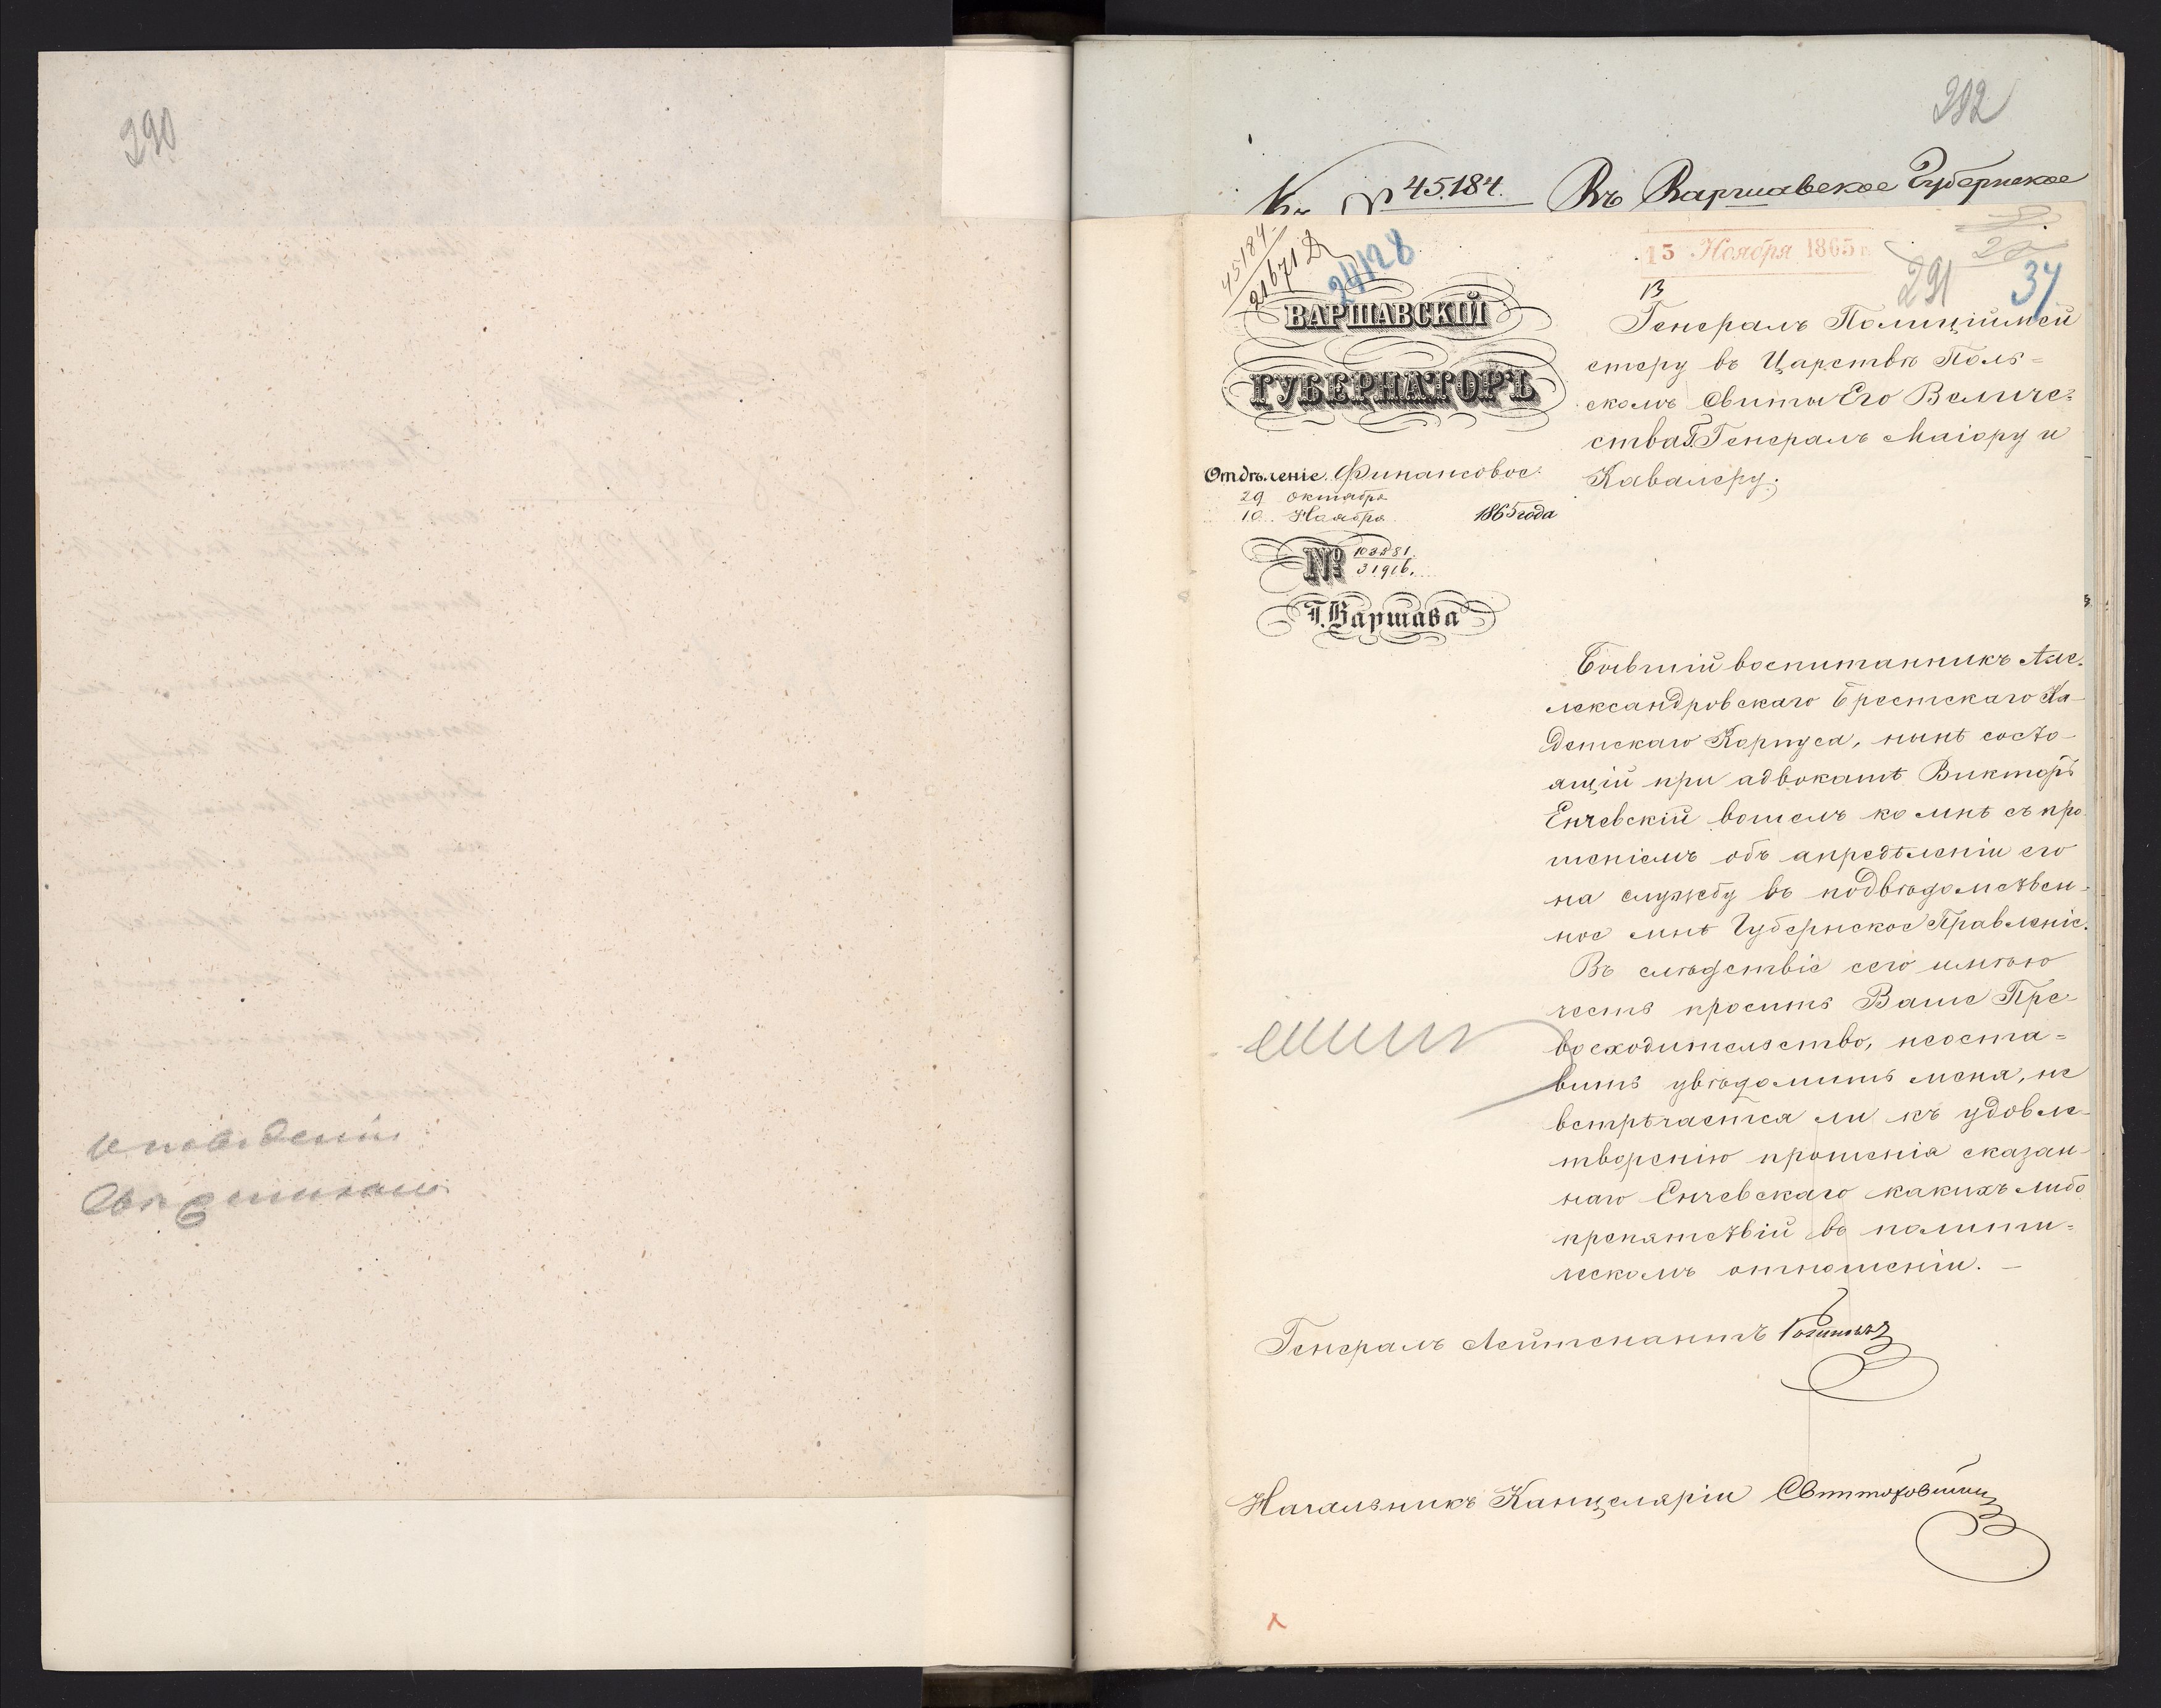 290
292
№ 45184. Въ Варшавское Губернское
45184
21671 Д
24128
13 Ноября 1865 г.
13
291
34
ВАРШАВСКІЙ
ГУБЕРНАТОРЪ
Отдѣленіе Финансовое.
29 октября
10 Ноября 1865 года
№
31916.
Г. Варшава
Генералъ Полиціймей
стеру въ Царствѣ Поль=
скомъ Свиты Его Величе=
ства Генералъ Маіору и
Кавалеру.
Бывшій воспитанникъ Але=
лександровскаго Брестскаго Ка-
детскаго Корпуса, нынѣ состо-
ящій при адвокатѣ Викторъ
Енчевскій вошелъ ко мнѣ съ про
шеніемъ объ апредѣленіи его
на службу въ подвѣдомствен=
ное мнѣ Губернское Правленіе.
Въ слѣдствіе сего имѣю
честь просить Ваше Пре-
восходительство, неоста=
вить увѣдомить меня, не
встрѣчается ли къ удовле-
творенію прошенія сказан-
наго Енчевскаго какихъ либо
препятствій въ полити=
ческомъ отношеніи. —
Генералъ Лейтенантъ
Начальникъ Канцеляріи